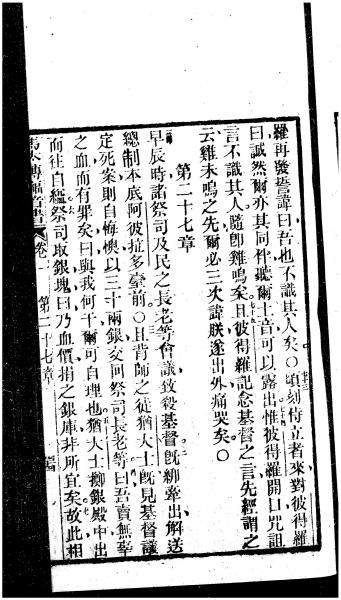 羅再發誓諱曰吾也不識其人矣〇頃刻侍立者來對彼得羅
曰誠然爾亦其同伴聽爾土音可以露出惟彼得羅開口咒詛
言不識其人隨卽雞鳴矣且彼得羅記念基督之言先經謂之
云雞未鳴之先爾必三次諱朕遂出外痛哭矣〇
第二十七章
早辰時諸祭司及民之長老等會議致殺基督旣綁牽出解送
總制本底阿彼拉多臺前〇且背師之徒猶大士旣見基督議
定死案則自悔懊以三十兩銀交囘祭司長老等曰吾賣無辜
之血而有罪矣曰與我何干爾可自理也猶大士擲銀殿中出
而往自縊祭司取銀塊曰乃血價捐之銀庫非所宜矣故此相
馬太傳福音書 卷一 第二十七章